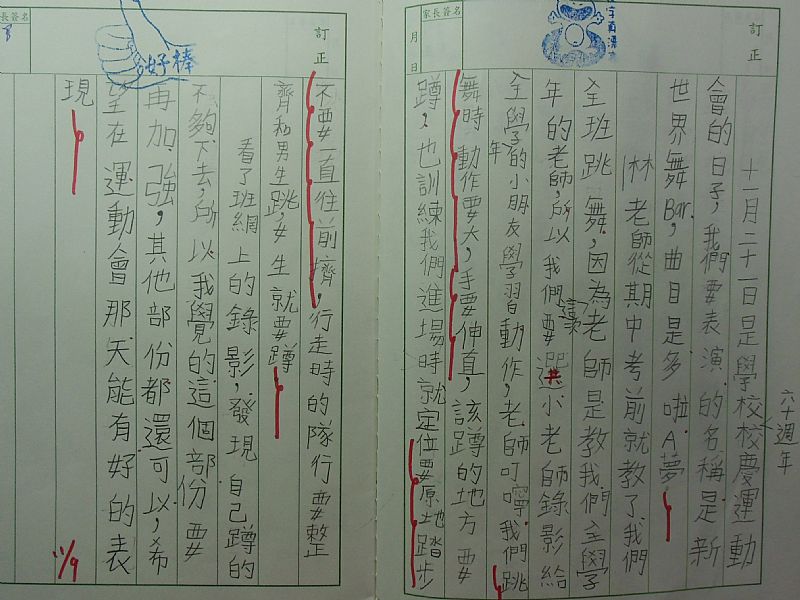 家長簽名
訂正
月
日
十一月二十一日是學校校慶運動
六十週年
會的日子，我們要表演的名稱是新
世界舞Bar，曲目是多啦A夢。
林老師從期中考前就教了我們
全班跳舞，因為老師是教我們全學
年的老師，所以我們要選小老師錄影給
讓
全學的小朋友學習動作，老師叮嚀我們跳
年
舞時，動作要大，手要伸直，該蹲的地方要
蹲，也訓練我們進場時就定位要原地踏步
家長簽名
訂正
好棒
不要一直往前擠，行走時的隊行要整
齊和男生跳，女生就要蹲
看了班網上的錄影，發現自己蹲的
不夠下去，所以我覺的這個部份要
再加強，其他部份都還可以，希
望在運動會那天能有好的表
現。
11/9